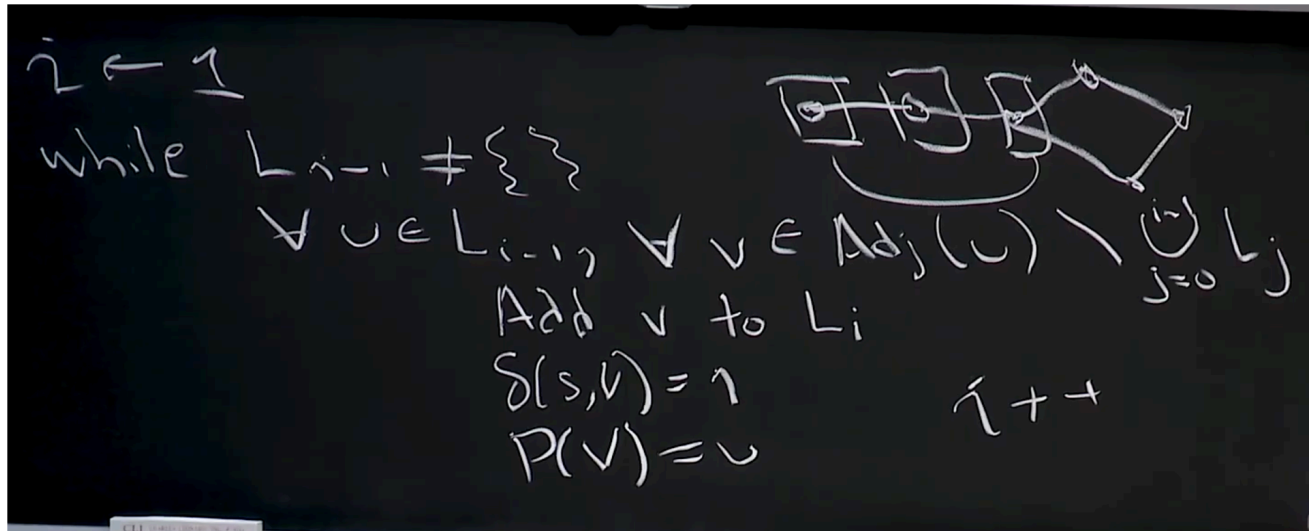 i ← 1
while L_{i-1} ≠ {}
∀ u ∈ L_{i-1}, ∀ v ∈ Adj(u) \ ⋃_{j=0}^{i-1} L_j
Add v to L_i
δ(s,v) = i
P(v) = u
i++